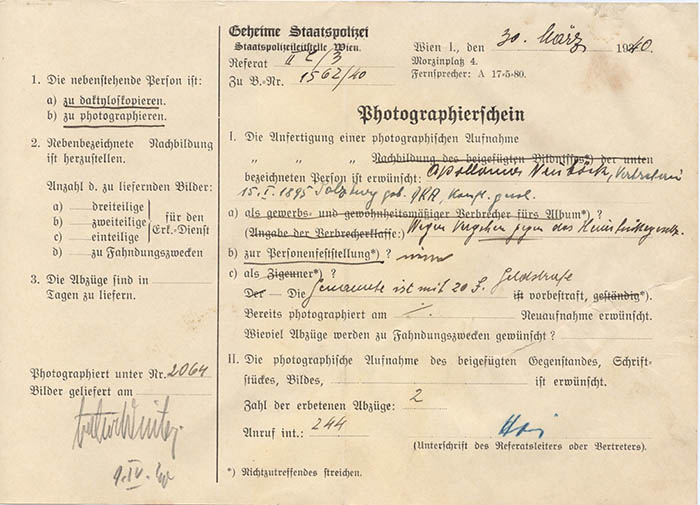 Geheime Staatspolizei
Staatspolizeileitstelle Wien.
Referat II E/3
Zu B.-Nr. 1562/40
Wien I., den 30. März 1940
Morzinplatz 4.
Fernsprecher: A 17-5-80.
1. Die nebenstehende Person ist:
a) zu daktyloskopieren.
b) zu photographieren.
2. Nebenbezeichnete Nachbildung
ist herzustellen.
Anzahl d. zu liefernden Bilder:
a) dreiteilige
b) zweiteilige
c) einteilige
für den
Erk.-Dienst
d) zu Fahndungszwecken
3. Die Abzüge sind in
Tagen zu liefern.
Photographiert unter Nr. 2064
Bilder geliefert am
9. IV. 40
Photographierschein
I. Die Anfertigung einer photographischen Aufnahme
" " " Nachbildung des beigefügten Bildnisses*) der unten
bezeichneten Person ist erwünscht:
15. I. 1895 Salzburg geb.
a) als gewerbs- und gewohnheitsmäßiger Verbrecher fürs Album*) ?
(Angabe der Verbrecherklasse: Wegen Vergehen gegen das
b) zur Personenfeststellung*) ?
c) als Zigeuner*) ?
Der - Die Genannte ist mit 20 S. Geldstrafe ist vorbestraft, geständig*).
Bereits photographiert am Neuaufnahme erwünscht.
Wieviel Abzüge werden zu Fahndungszwecken gewünscht ?
II. Die photographische Aufnahme des beigefügten Gegenstandes, Schrift-
stückes, Bildes, ist erwünscht.
Zahl der erbetenen Abzüge: 2
Anruf int.: 244
(Unterschrift des Referatsleiters oder Vertreters).
*) Nichtzutreffendes streichen.